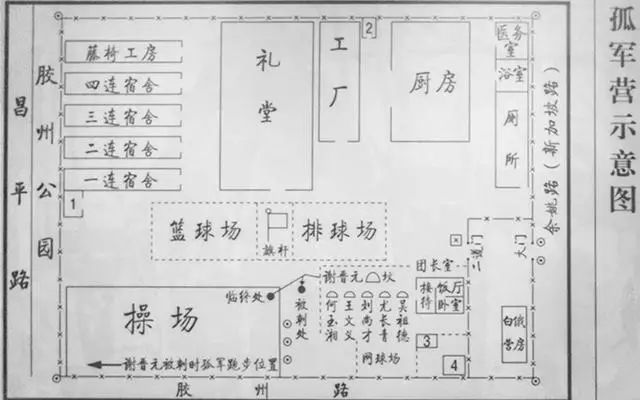 孤军营示意图
昌平路
胶州公园
藤椅工房
四连宿舍
三连宿舍
二连宿舍
一连宿舍
1
礼堂
工厂
2
厨房
医务室
浴室
厕所
余姚路(新加坡路)
篮球场
旗杆
排球场
二道门
大门
团长室
接待
饭厅
卧室
谢晋元坟
何玉湘
王文义
刘尚才
尤长青
吴祖德
临终处
被刺处
操场
谢晋元被刺时孤军跑步位置
网球场
3
4
白俄营房
胶州路